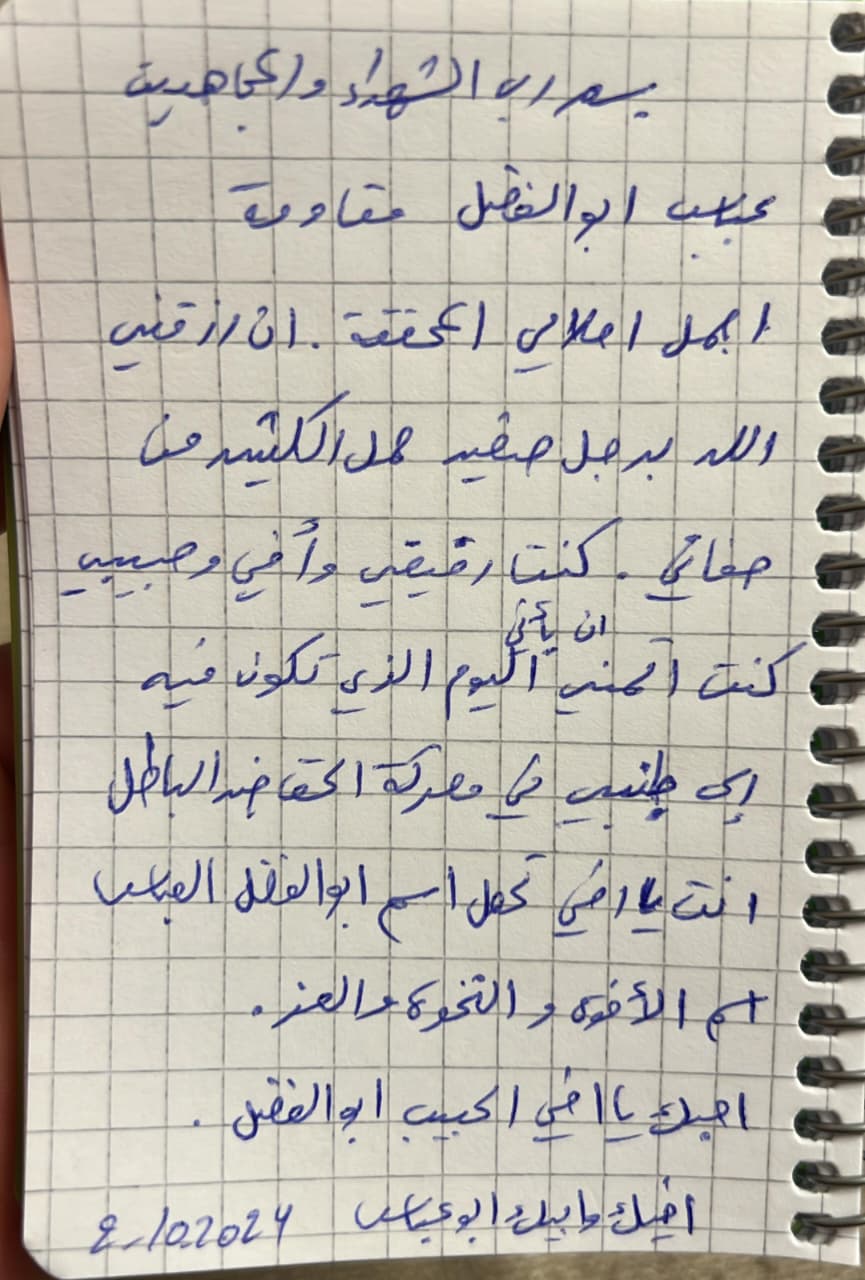 بسم رب الشهداء والمجاهدين
عباس ابو الفضل مقاومة
اجمل احلامي المحققة. ان رزقني
الله برجل صغير حمل الكثير من
صفاتي. كنت رفيقي وأخي وحبيبي
ان يأتي
كنت أتمنى اليوم الذي تكون فيه
إلى جنبي في معركة الحق ضد الباطل
انت يا اخي تحمل اسم ابو الفضل العباس
اسم الأخوة و النخوة والعز.
احبك يا اخي الحبيب ابو الفضل.
اخيك وابيك ابو عباس 2024